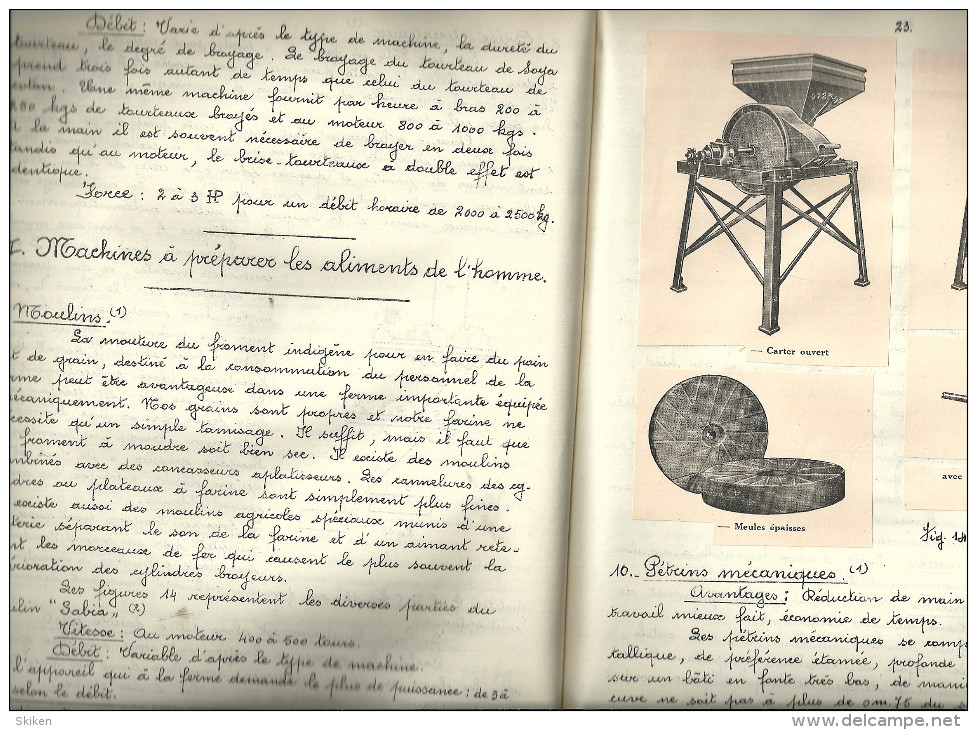 Débit : Varie d'après le type de machine, la dureté du
tourteau, le degré de broyage. Le broyage du tourteau de Soya
prend trois fois autant de temps que celui du tourteau de
Une même machine fournit par heure à bras 200 à
kgs de tourteaux broyés et au moteur 800 à 1000 kgs.
la main il est souvent nécessaire de broyer en deux fois
tandis qu'au moteur, le brise-tourteaux à double effet est
dentique.
Force : 2 à 3 HP pour un débit horaire de 2000 à 2500 kg.
I. Machines à préparer les aliments de l'homme.
Moulins. (1)
La mouture du froment indigène pour en faire du pain
de grain, destiné à la consommation du personnel de la
rme peut être avantageuse dans une ferme importante équipée
écaniquement. Nos grains sont propres et notre farine ne
cessite qu'un simple tamisage. Il suffit, mais il faut que
froment à moudre soit bien sec. Il existe des moulins
mbinés avec des concasseurs aplatisseurs. Les cannelures des cy-
dres ou plateaux à farine sont simplement plus fines.
existe aussi des moulins agricoles spéciaux munis d'une
terie séparant le son de la farine et d'un aimant rete-
nt les morceaux de fer qui causent le plus souvent la
rioration des cylindres broyeurs.
Les figures 14 représentent les diverses parties du
ulin "Sabia" (2)
Vitesse : Au moteur 400 à 500 tours.
Débit : Variable d'après le type de machine.
l'appareil qui à la ferme demande le plus de puissance : de 3 à
selon le débit.
23.
— Carter ouvert
— Meules épaisses
avec
Fig. 14
10._ Pétrins mécaniques. (1)
Avantages : Réduction de main
travail mieux fait, économie de temps.
Les pétrins mécaniques se comp
tallique, de préférence étamée, profonde
sur un bâti en fonte très bas, de mani
cuve ne soit pas à plus de 0m.75 du s
Skiken
www.delcampe.net